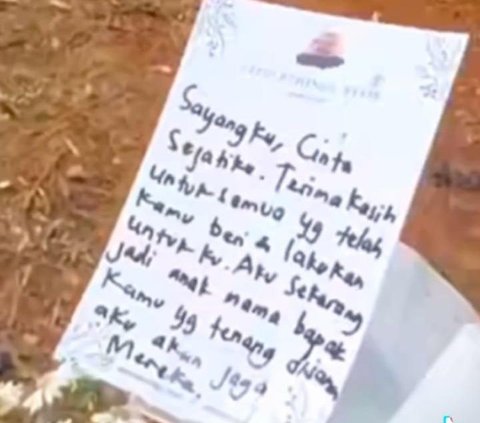 Sayangku, Cinta
Sejatiku. Terima Kasih
untuk semua yg telah
kamu beri & lakukan
untuk ku. Aku sekarang
jadi anak mama bapak
Kamu yg tenang disana
aku akan jaga
Mereka.